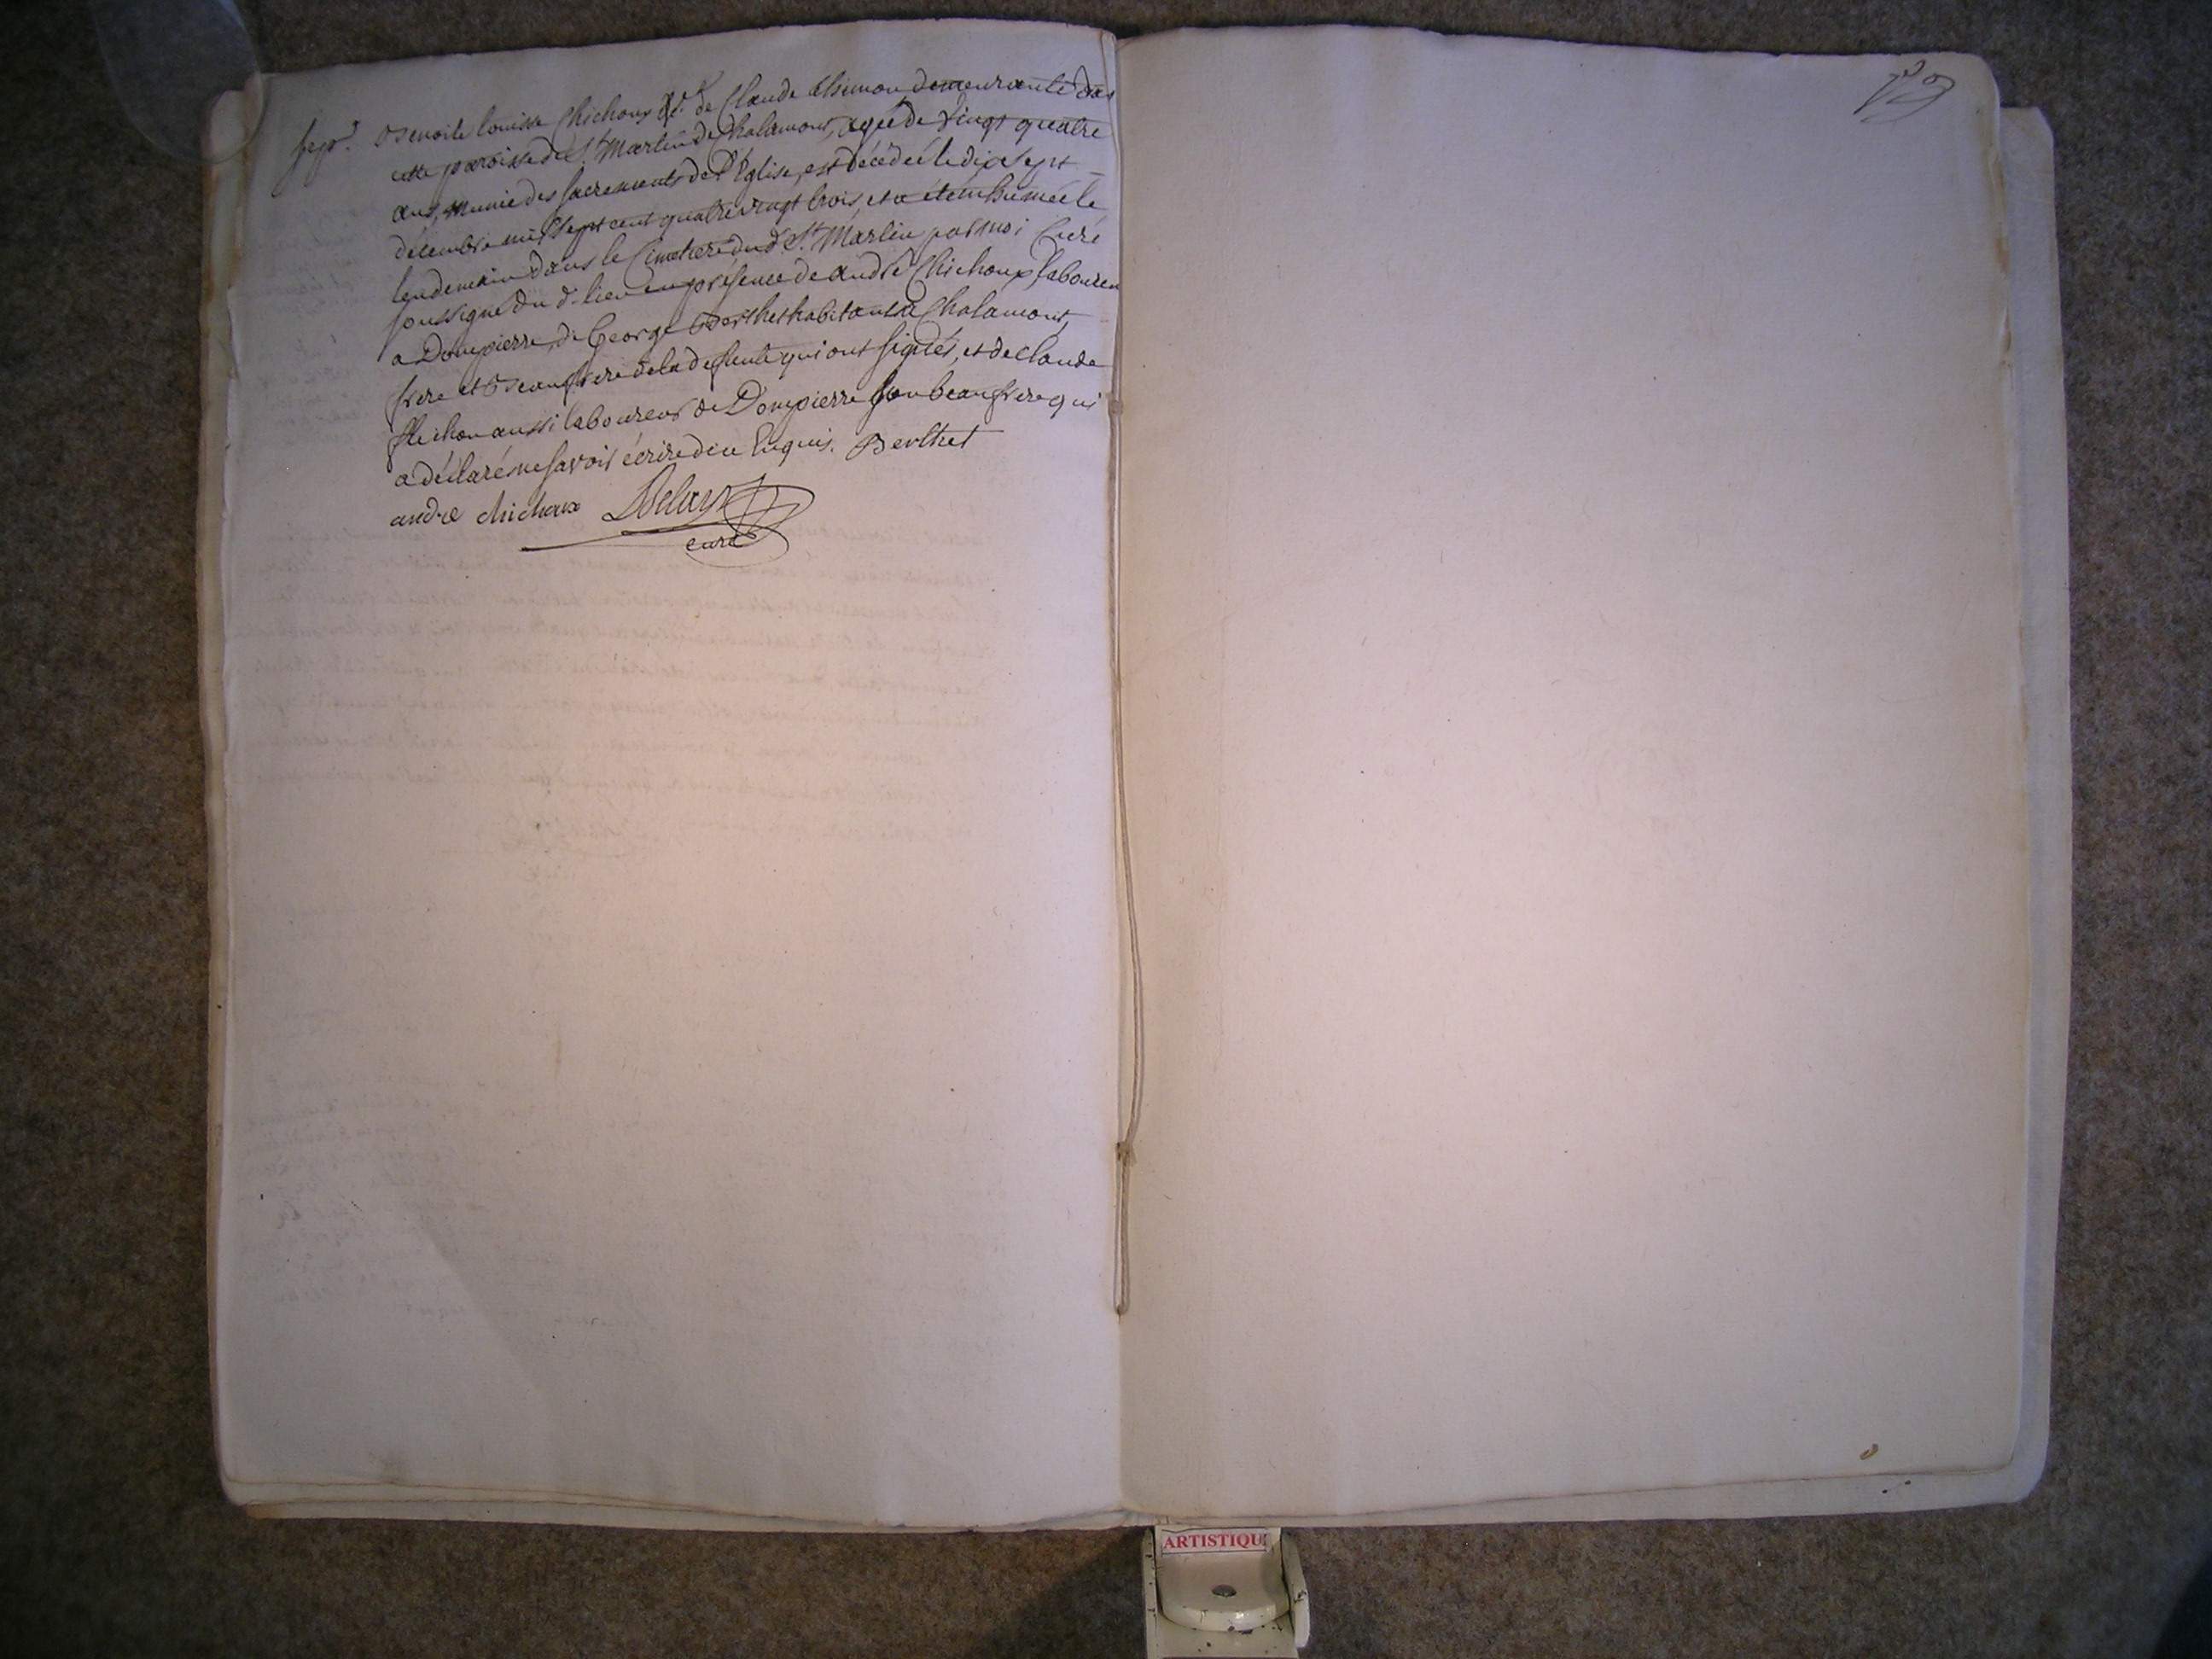 sep.re Benoite Louise Chichoux f.e de Claude Thimon demeurante dans
cette paroisse de St. Martin de Chalamont, agée de vingt quatre
ans, munie des sacrements de l'Eglise, est décédée le dix sept
décembre mil sept cent quatre vingt trois, et a été inhumée le
lendemain dans le Cimetiere du d. St. Martin par moi Curé
soussigné du d. lieu en présence de andré Chichoux laboureur
a Dompierre, de George Berthet habitant de Chalamont,
frere et Beaufrere de la defunte qui ont signés, et de Claude
aussi laboureur de Dompierre son beaufrere qui
a déclaré ne savoir écrire de ce Enquis. Berthet
andré chichoux Delaya
curé
ARTISTIQU